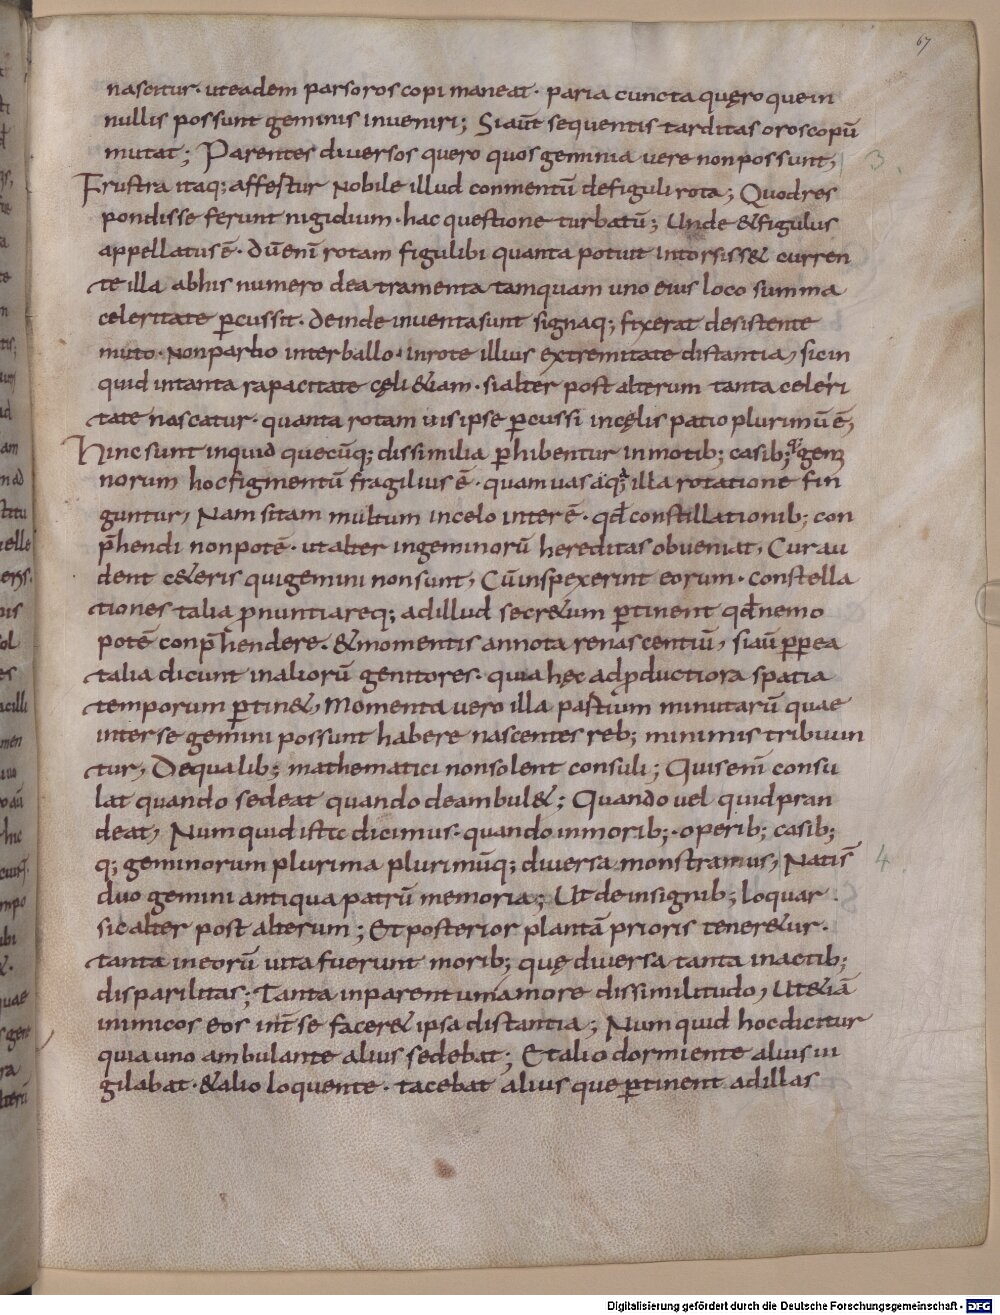 67
nascitur · uteadem parsoroscopi maneat · paria cuncta quęro quein
nullis possunt geminis inveniri; Siaūt sequentis tarditas oroscopū
mutat; Parentes diversos quero quosgeminia uere nonpossunt,
3
Frustra itaq; affestur Nobile illud conmentū defiguli rota; Quodres
pondisse ferunt nigidium · hac questione turbatū; Unde &figulus
appellatus ē · dū enī rotam figulibi quanta potuit intorsiss& curren
te illa abhis numero dea tramenta tamquam uno eius loco summa
celeritate p̄cussit · deinde inventasunt signaq; fixerat desistente
muto · Nonparbo interballo · inrote illius extremitate distantia, sicin
quid intanta rapacitate cęli &iam · sialter post alterum tanta celeri
tate nascatur · quanta rotam uis ipse p̄cussi incęlis patio plurimū ē,
Hinc sunt inquid quecūq; dissimilia p̄hibentur inmotib; casib; q; gem
norum hocfigmentū fragilius ē · quam uas aq; illa rotatione fin
guntur, Nam sitam multum incelo inter ē · qđ constillationib; con
p̄hendi nonpotē · utalter ingeminorū hereditas obueniat, Cur au
dent c&eris quigemini nonsunt, Cū inspexerint eorum · constella
tiones talia p̄nuntiareq; adillud secr&um p̄tinent qđ nemo
potē conp̄hendere · &momentis annota renascentiū, siaū p̄p̄ea
talia dicunt inaliorū genitores · quia hęc adp̄ductiora spatia
temporum p̄tin&, Momenta uero illa pastium minutarū quae
interse gemini possunt habere nascentes reb; minimis tribuun
tur, Dequalib; mathematici nonsolent consuli; Quisenī consu
lat quando sedeat quando deambul&; Quando uel quidpran
deat, Numquid istec dicimus · quando inmorib; · operib; casib;
q; geminorum plurima plurimūq; diversa monstramus, Natis̄
4
duo gemini antiqua patrū memoria; Ut deinsignib; loquar ·
sicalter post alterum; Et posterior plantā prioris tener&ur ·
tanta ineorū uita fuerunt morib; quę diversa tanta inactib;
disparilitas; Tanta inparent umamore dissimilitudo, Ut&iā
inimicos eos int̄se facer& ipsa distantia; Numquid hocdicitur
quia uno ambulante alius sedebat; Etalio dormiente alius ui
gilabat · &alio loquente · tacebat alius que p̄tinent adillas
Digitalisierung gefördert durch die Deutsche Forschungsgemeinschaft - DFG